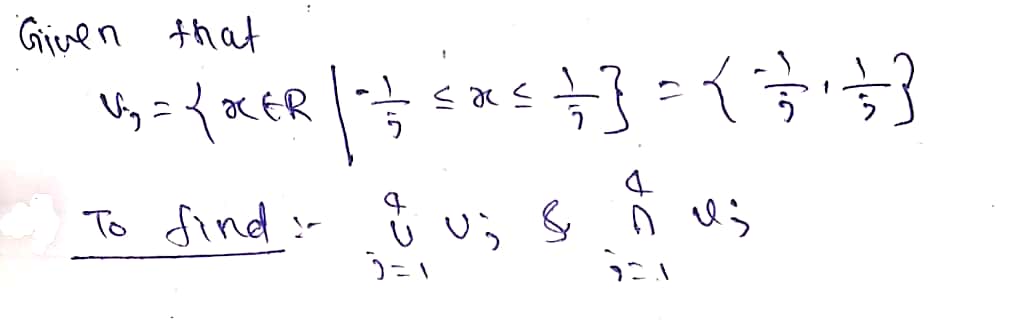 Given that
Vj = {x∈R | -1/j ≤ x ≤ 1/j} = {-1/j, 1/j}
To find :- 4 ∪ j=1 Vj & 4 ∩ j=1 Vj